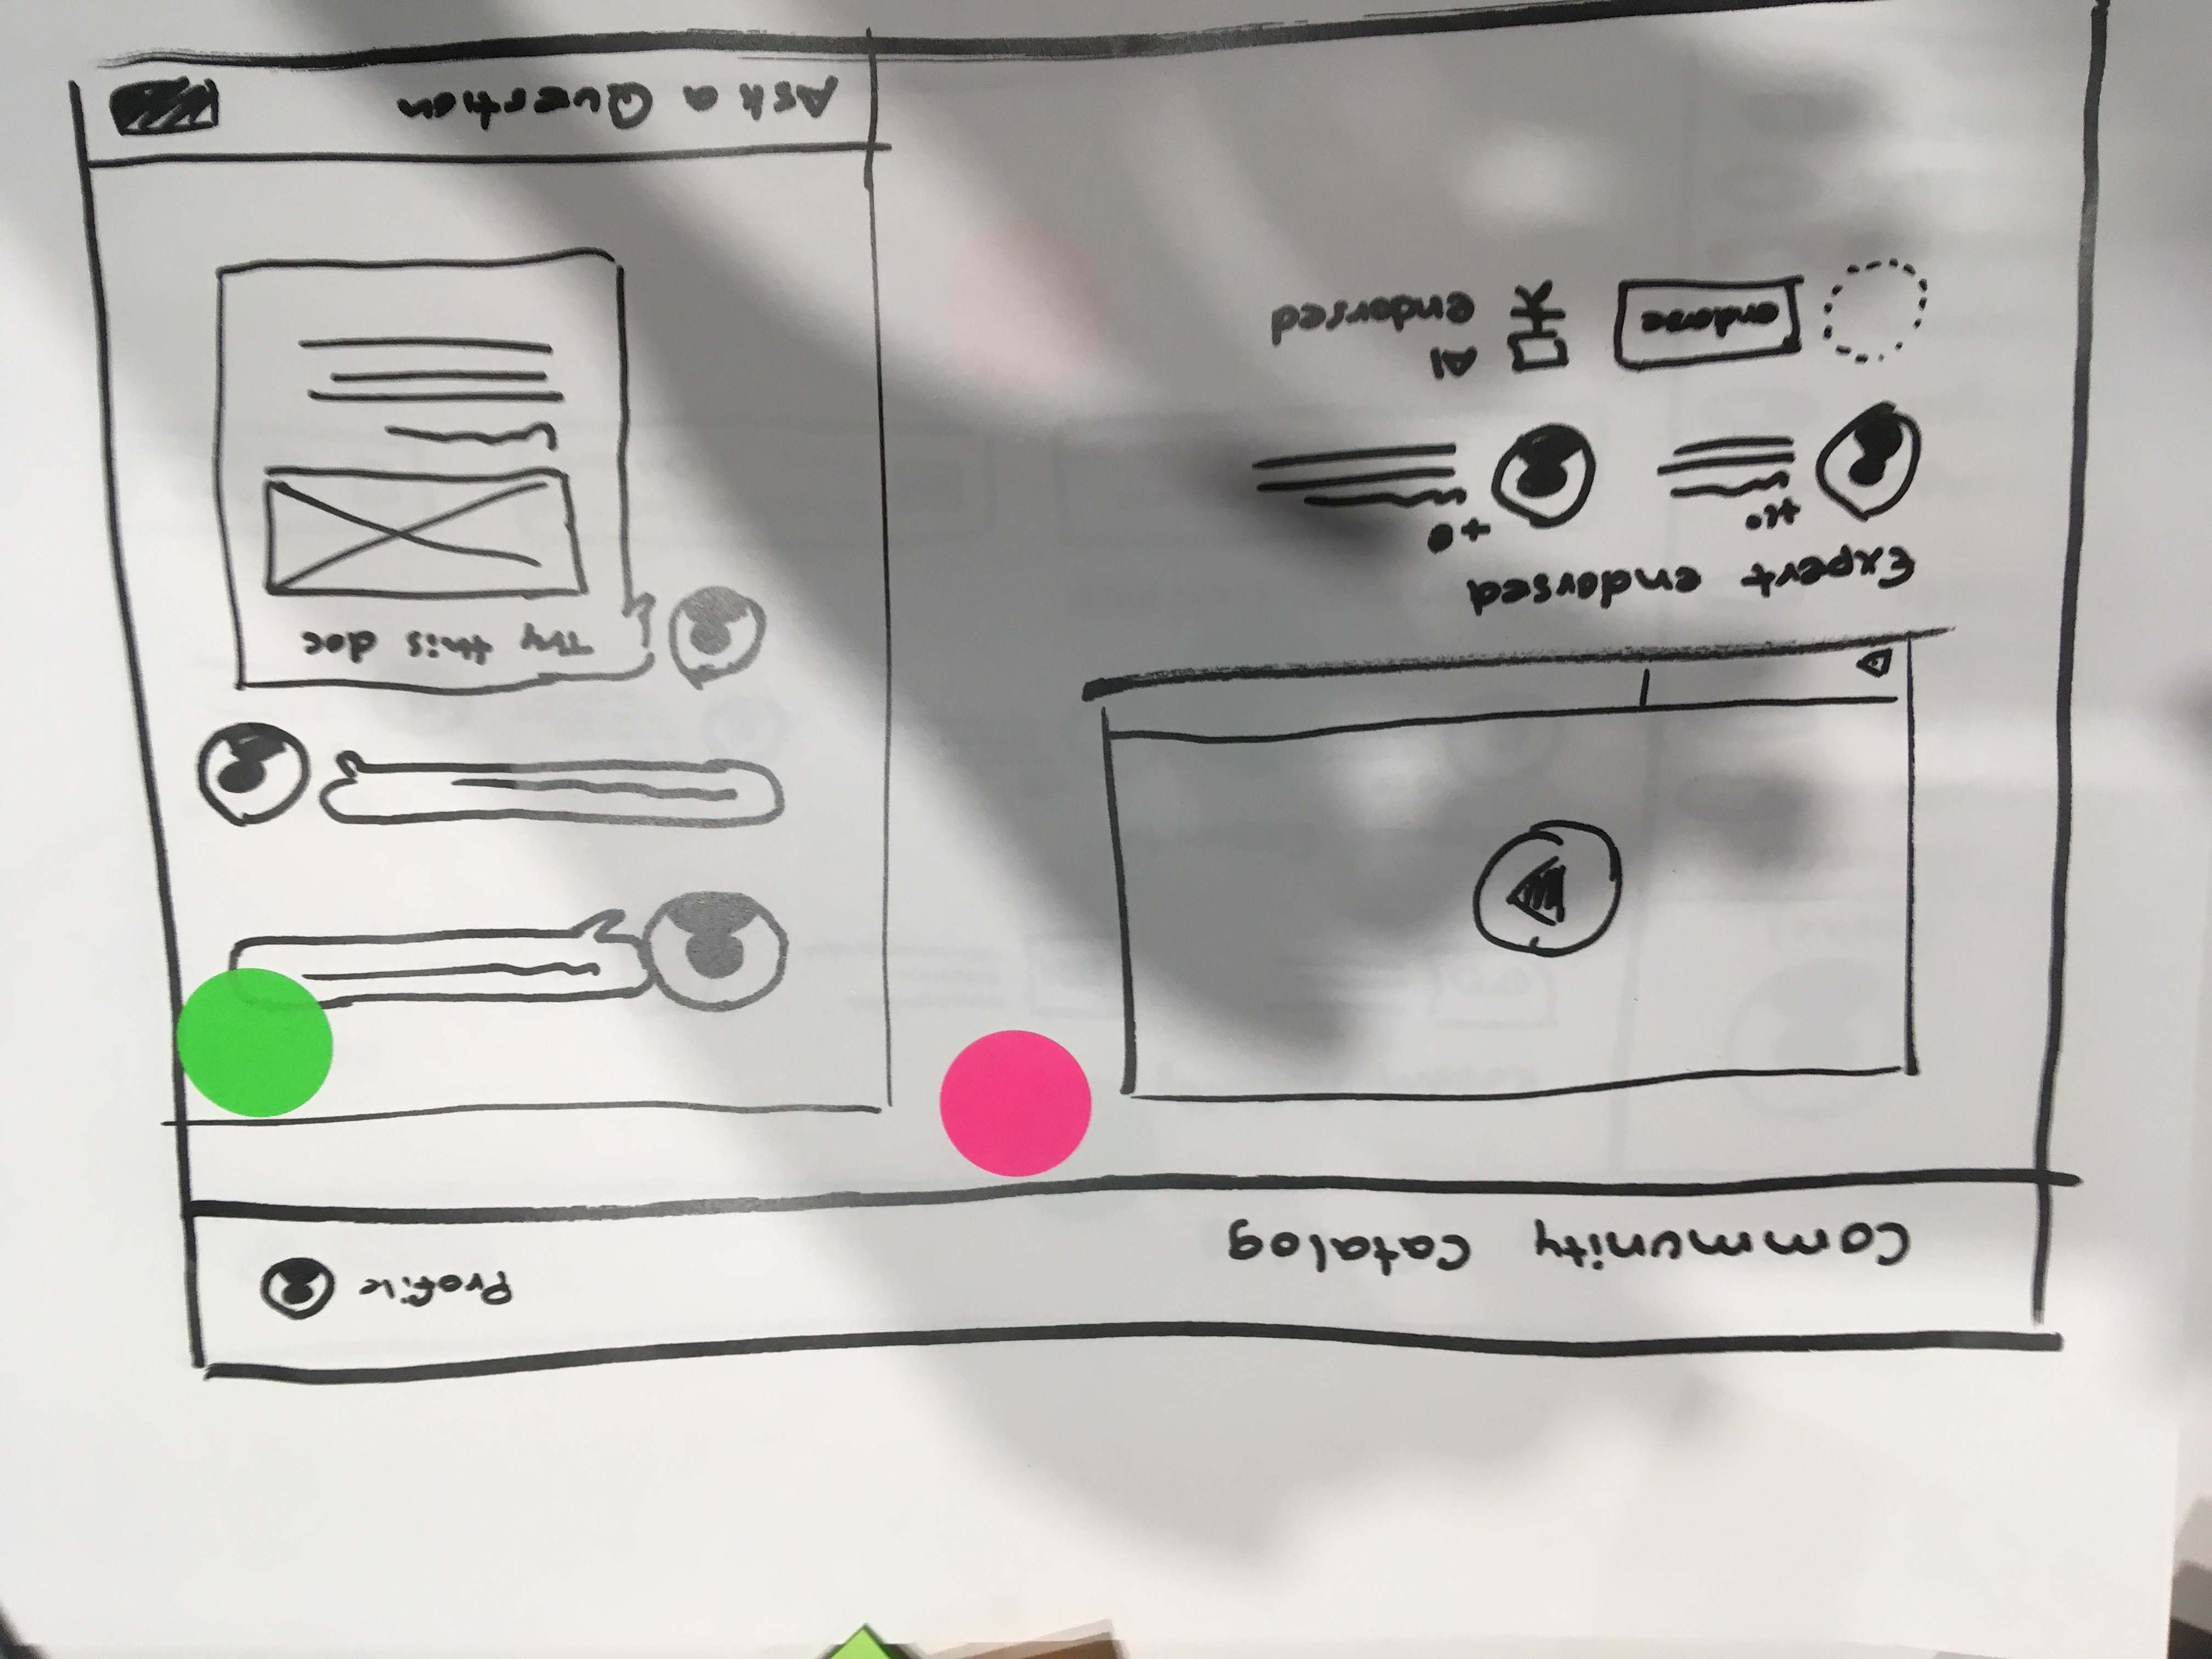 Community Catalog
Profile
Expert endorsed
endorse
AI
endorsed
Try this doc
Ask a Question